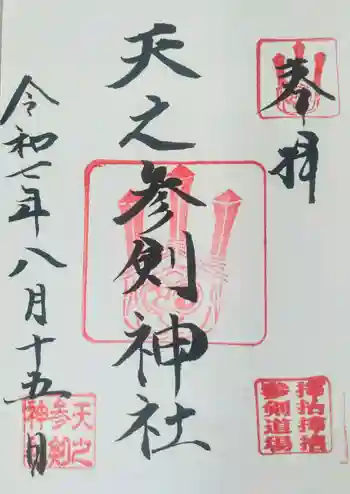 奉拝
天之参剣神社
令和七年八月十五日
天之
参剣
神
参剣道場